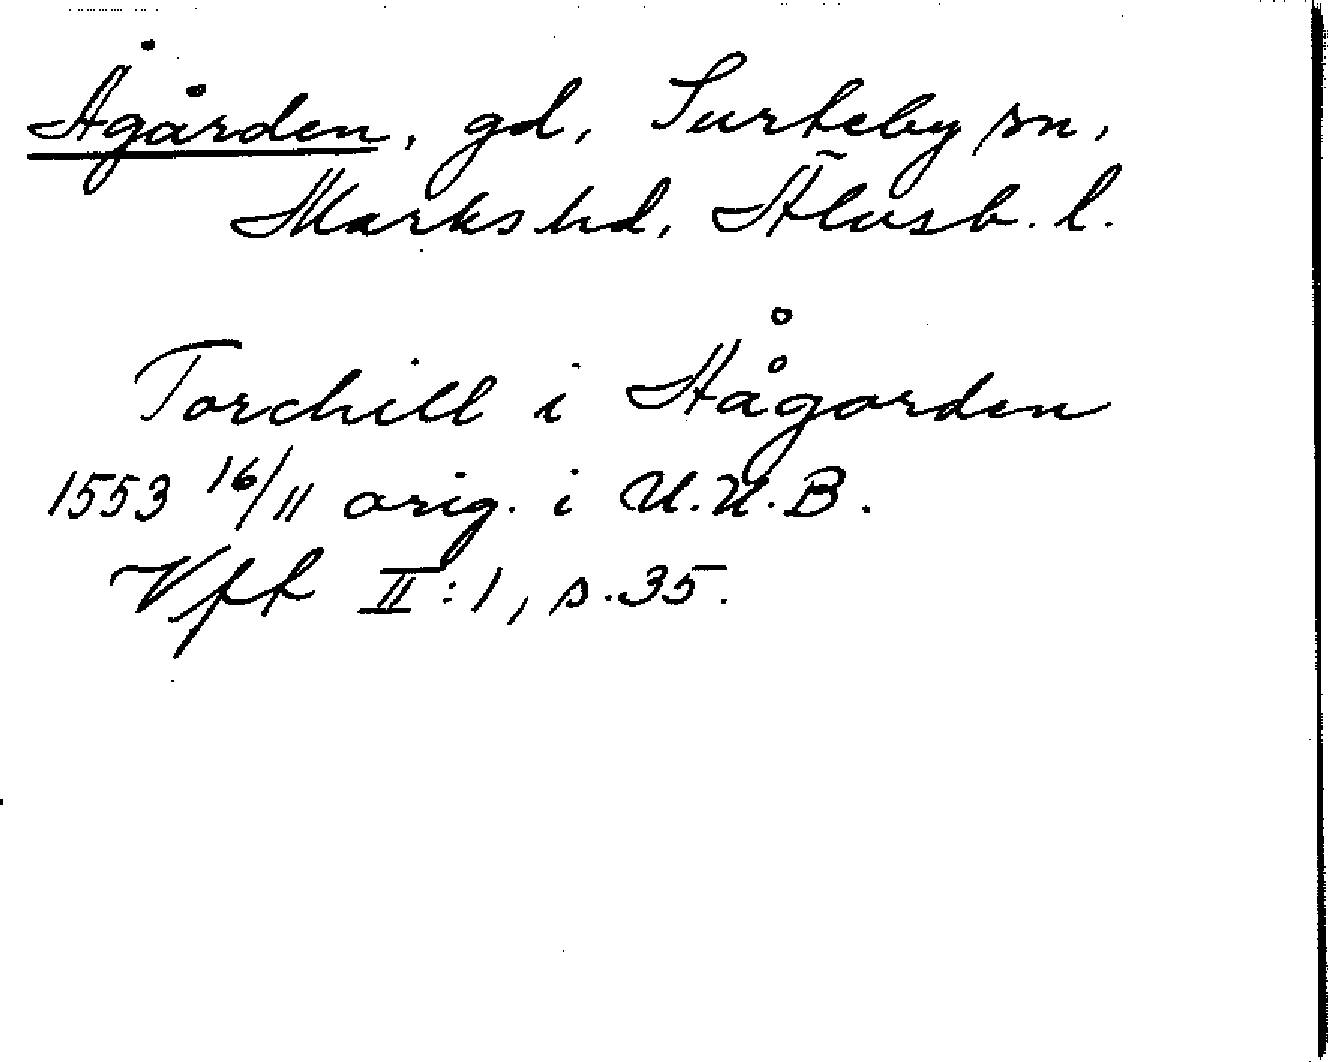 Ågården, gd, Surteby sn,
Marks hd, Älvsb. l.
Torchill i Åågorden
1553 16/11 orig. i U.U.B.
Vfk II:1, s.35.